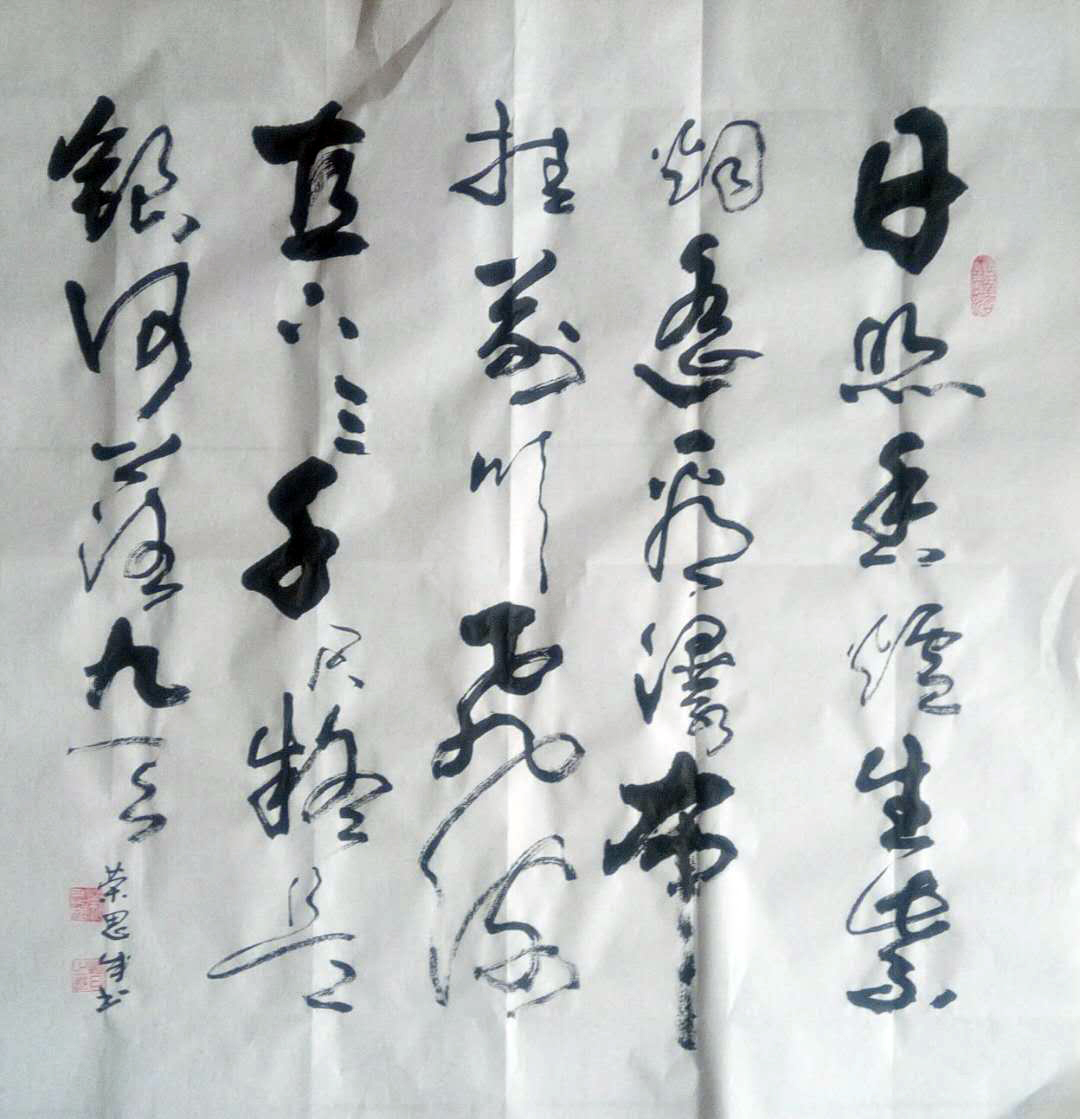 日照香爐生紫
烟遥看瀑布
挂前川飛流
直下三千尺疑是
銀河落九天
荣思成书